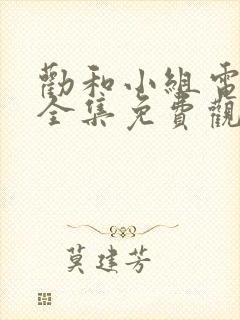 勸和小組電
全集免費觀
莫建芳